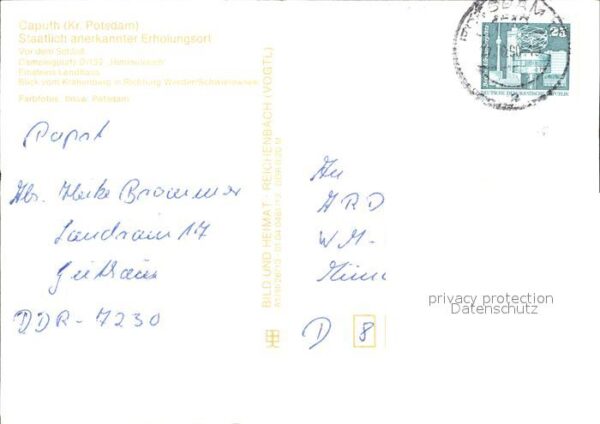 Caputh (Kr. Potsdam)
Staatlich anerkannter Erholungsort
Vor dem Schloß
Campingplatz D/132 „Himmelreich“
Einsteins Landhaus
Blick vom Krähenberg in Richtung Werder/Schwielowsee
Farbfotos: Potsdam
Papst
Abs. Heike
Landrain 17
Geithain
DDR - 7230
BILD UND HEIMAT · REICHENBACH (VOGTL)
An
ARD
WM-
D 8
POTSDAM
25
DEUTSCHE DEMOKRATISCHE REPUBLIK
privacy protection
Datenschutz